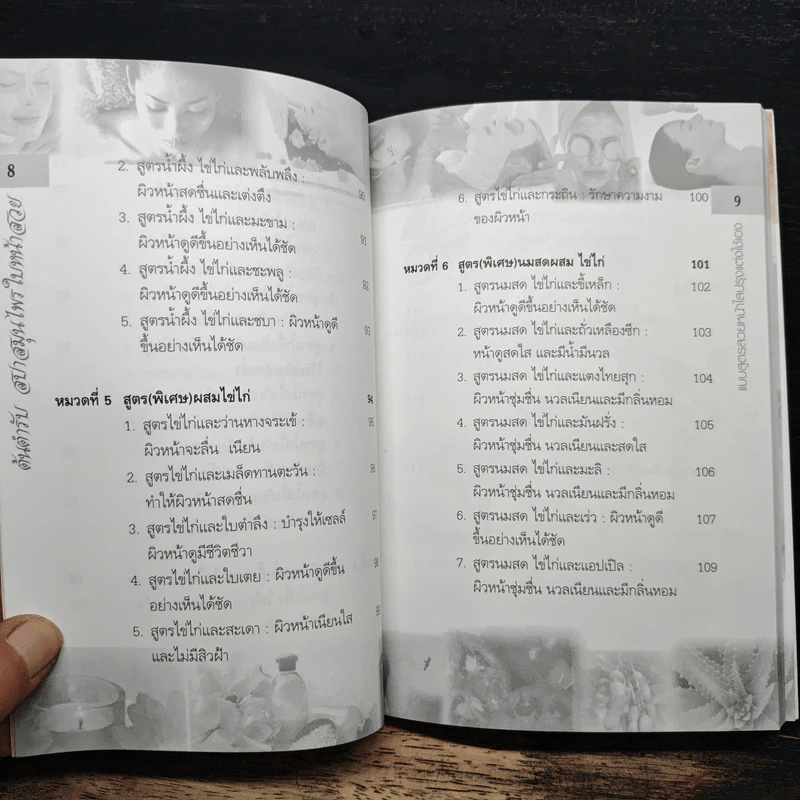 8
ต้นตำรับ สปาสมุนไพร ใบหน้าสวย
2. สูตรน้ำผึ้ง ไข่ไก่และพลับพลึง :
ผิวหน้าสดชื่นและเต่งตึง 90
3. สูตรน้ำผึ้ง ไข่ไก่และมะขาม : 91
ผิวหน้าดูดีขึ้นอย่างเห็นได้ชัด
4. สูตรน้ำผึ้ง ไข่ไก่และชะพลู : 92
ผิวหน้าดูดีขึ้นอย่างเห็นได้ชัด
5. สูตรน้ำผึ้ง ไข่ไก่และชบา : ผิวหน้าดูดี 93
ขึ้นอย่างเห็นได้ชัด
หมวดที่ 5 สูตร(พิเศษ)ผสมไข่ไก่ 94
1. สูตรไข่ไก่และว่านหางจระเข้ : 95
ผิวหน้าจะลื่น เนียน
2. สูตรไข่ไก่และเมล็ดทานตะวัน : 96
ทำให้ผิวหน้าสดชื่น
3. สูตรไข่ไก่และใบตำลึง : บำรุงให้เซลล์ 97
ผิวหน้าดูมีชีวิตชีวา
4. สูตรไข่ไก่และใบเตย : ผิวหน้าดูดีขึ้น 98
อย่างเห็นได้ชัด
5. สูตรไข่ไก่และสะเดา : ผิวหน้าเนียนใส 99
และไม่มีสิวฝ้า
9
แบบสูตรสวยหน้าใสปรุงแต่งใช้เอง
6. สูตรไข่ไก่และกระถิน : รักษาความงาม 100
ของผิวหน้า
หมวดที่ 6 สูตร(พิเศษ)นมสดผสม ไข่ไก่ 101
1. สูตรนมสด ไข่ไก่และขี้เหล็ก : 102
ผิวหน้าดูดีขึ้นอย่างเห็นได้ชัด
2. สูตรนมสด ไข่ไก่และถั่วเหลืองซีก : 103
หน้าดูสดใส และมีน้ำมีนวล
3. สูตรนมสด ไข่ไก่และแตงไทยสุก : 104
ผิวหน้าชุ่มชื่น นวลเนียนและมีกลิ่นหอม
4. สูตรนมสด ไข่ไก่และมันฝรั่ง : 105
ผิวหน้าชุ่มชื่น นวลเนียนและสดใส
5. สูตรนมสด ไข่ไก่และมะลิ : 106
ผิวหน้าชุ่มชื่น นวลเนียนและมีกลิ่นหอม
6. สูตรนมสด ไข่ไก่และเร่ว : ผิวหน้าดูดี 107
ขึ้นอย่างเห็นได้ชัด
7. สูตรนมสด ไข่ไก่และแอปเปิล : 109
ผิวหน้าชุ่มชื่น นวลเนียนและมีกลิ่นหอม